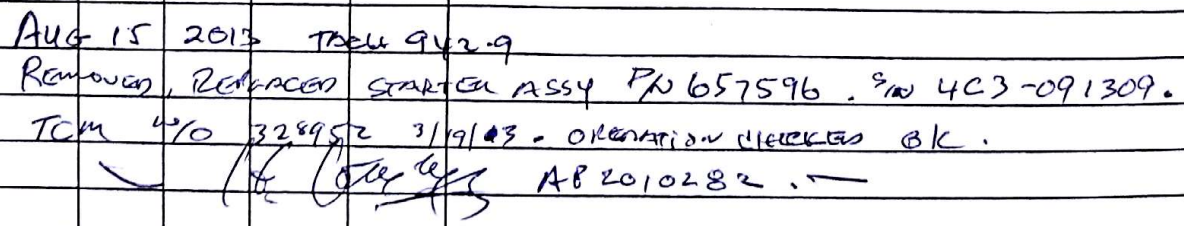 AUG 15 2013 TACH 942.9
REMOVED, REPLACED STARTER ASSY P/N 657596. S/N 4C3-091309.
TCM W/O 328952 3/19/13. OPERATION CHECKED OK.
AP 2010282.